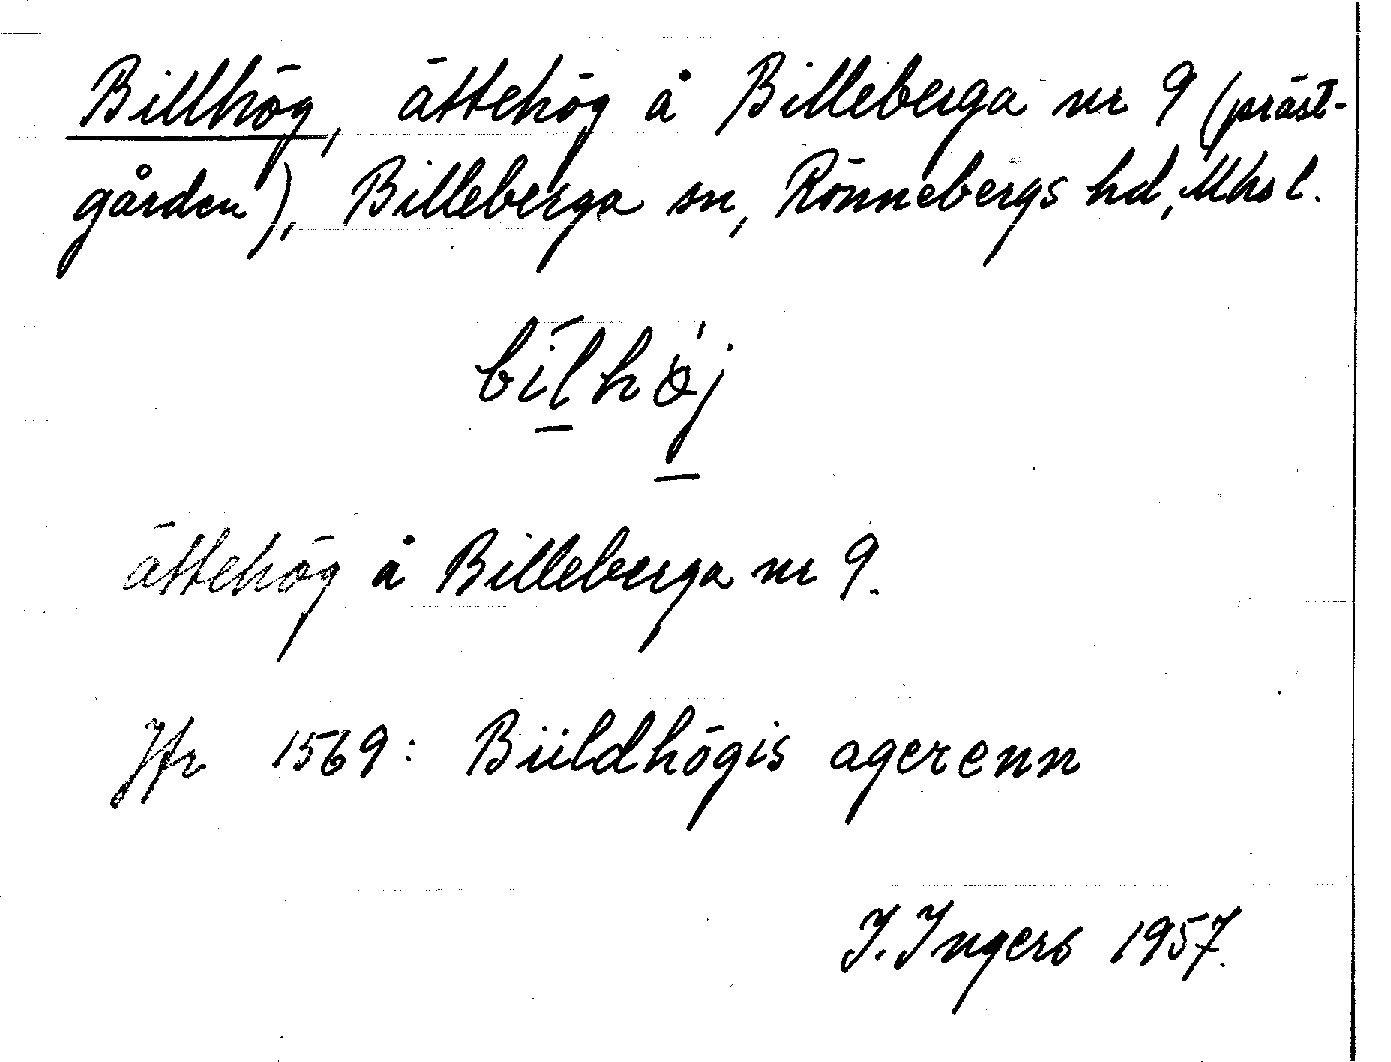 Billhög, ättehög å Billeberga nr 9 (präst-
gården), Billeberga sn, Rönnebergs hd, Mhs l.
bilhøj
ättehög å Billeberga nr 9.
Jfr 1569: Büldhögis agerenn
I. Ingers 1957.